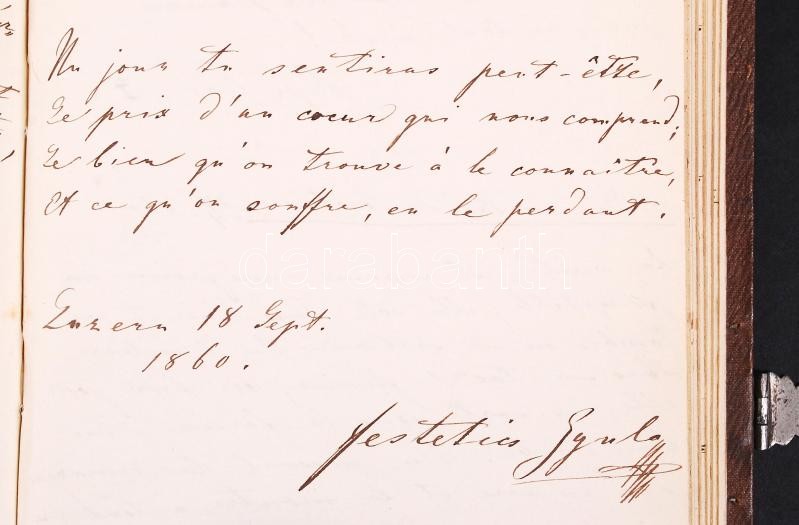 Un jour tu sentiras peut-être,
Le prix d'un coeur qui nous comprend;
Le bien qu'on trouve à le connaître,
Et ce qu'on souffre, en le perdant.
darabanth
Luzern 18 Sept.
1860.
Festetics Gyula